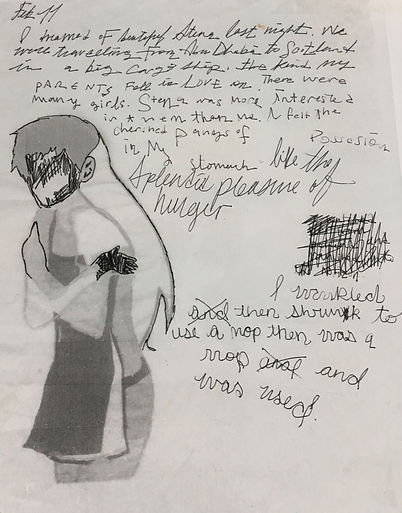 Feb-11
I dreamed of beautiful Stena last night. We
were travelling from Abu Dhabi to Scotland
in a big Cargo ship. the kind my
PARENTS Fell in LOVE on. There were
many girls. Stena was more interested
in them than me. I felt the
cherished pangs of Possession
in My stomach like the
splendid pleasure of
hunger
I wrinkled
and then shrunk to
use a mop then was a
mop and and
was used.